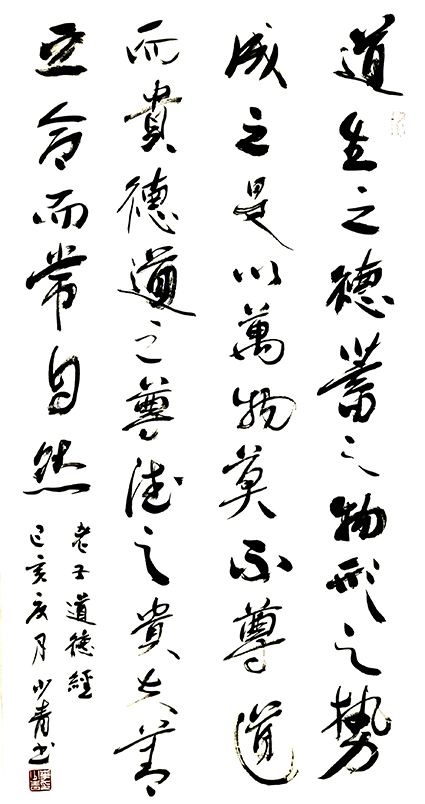 道生之德蓄之物形之勢
成之是以萬物莫不尊道
而貴德道之尊德之貴夫莫
命而常自然
老子道德經
己亥月少青书